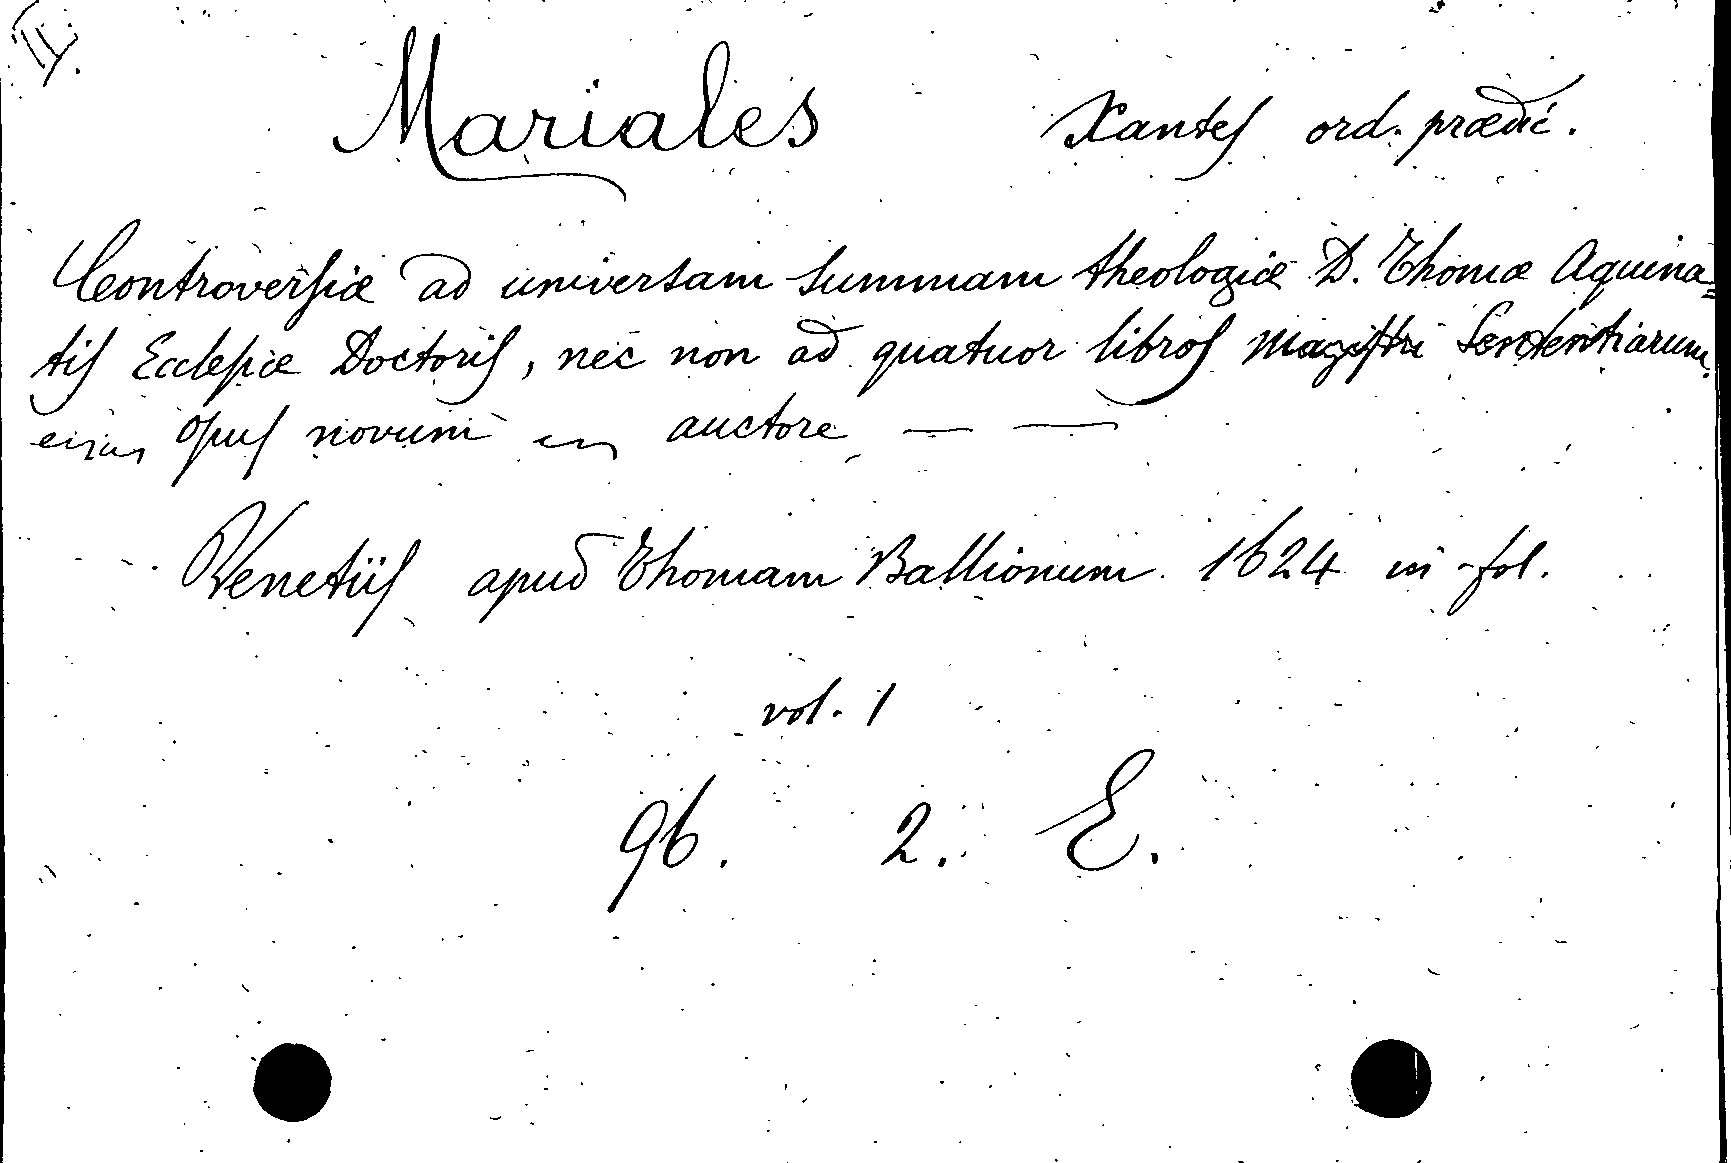 II.
Mariales Xantes ord. prædic.
Controversiæ ad universam summam theologiæ D. Thomæ Aquina=
tis Ecclesiæ Doctoris, nec non ad quatuor libros magistri Sententiarum
opus novum auctore — —
Venetiis apud Thomam Ballionum 1624 in-fol.
vol. 1
96. 2. E.